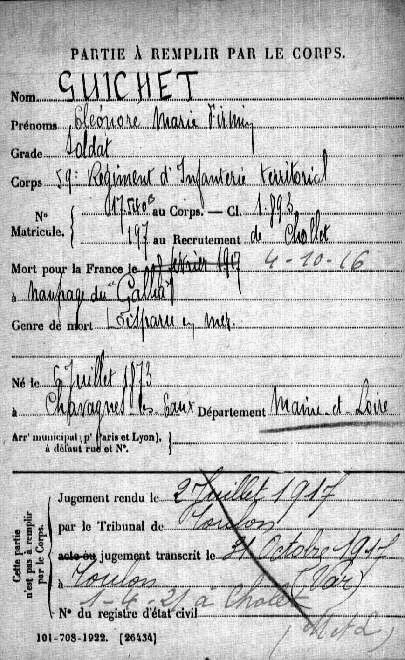 PARTIE À REMPLIR PAR LE CORPS.
Nom GUICHET
Prénoms Eléonore Marie Firmin
Grade Soldat
Corps 59e Régiment d'Infanterie territorial
N° Matricule. { 17540B au Corps. — Cl. 1893
197 au Recrutement de Chollet
Mort pour la France le février 1917 4-10-16
à naufrage du "Gallia"
Genre de mort Disparu en mer.
Né le 6 Juillet 1873
à Chavagnes les Eaux Département Maine-et-Loire
Arr' municipal (p' Paris et Lyon), à défaut rue et N°.
Cette partie n'est pas à remplir par le Corps.
Jugement rendu le 2 Juillet 1917
par le Tribunal de Toulon
acte ou jugement transcrit le 31 Octobre 1917
à Toulon (Var)
à Cholet
N° du registre d'état civil (M et L)
101-708-1922. [26434]